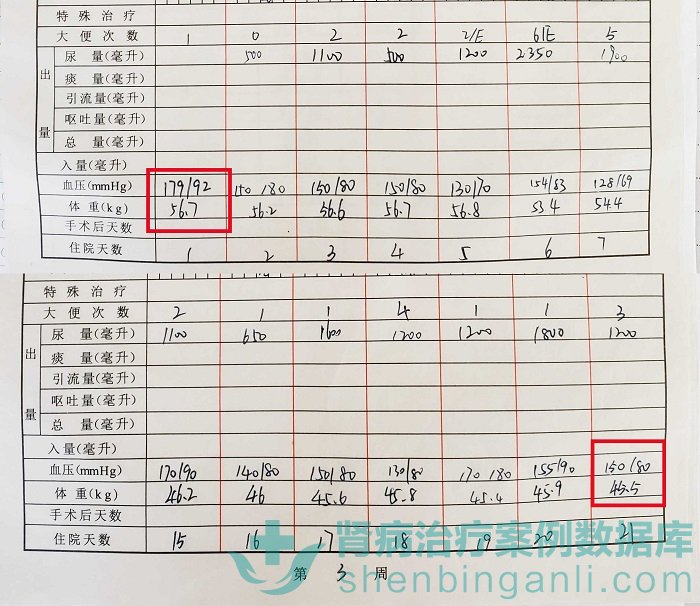 特殊治疗
大便次数 1 0 2 2 2/E 6/E 5
尿 量(毫升) 500 1100 500 1200 2350 1900
出 痰 量(毫升)
引流量(毫升)
量 呕吐量(毫升)
总 量(毫升)
入量(毫升)
血压(mmHg) 179/92 150/80 150/80 150/80 130/70 154/83 128/69
体 重(kg) 56.7 56.2 56.6 56.7 56.8 53.4 54.4
手术后天数
住院天数 1 2 3 4 5 6 7
特殊治疗
大便次数 2 1 1 4 1 1 3
尿 量(毫升) 1100 650 1600 1200 1200 1800 1200
出 痰 量(毫升)
引流量(毫升)
量 呕吐量(毫升)
总 量(毫升)
入量(毫升)
血压(mmHg) 170/90 140/80 150/80 130/80 170/80 155/90 150/80
体 重(kg) 46.2 46 45.6 45.8 45.4 45.9 45.5
手术后天数
住院天数 15 16 17 18 19 20 21
第 3 周
肾病治疗案例数据库
shenbinganli.com